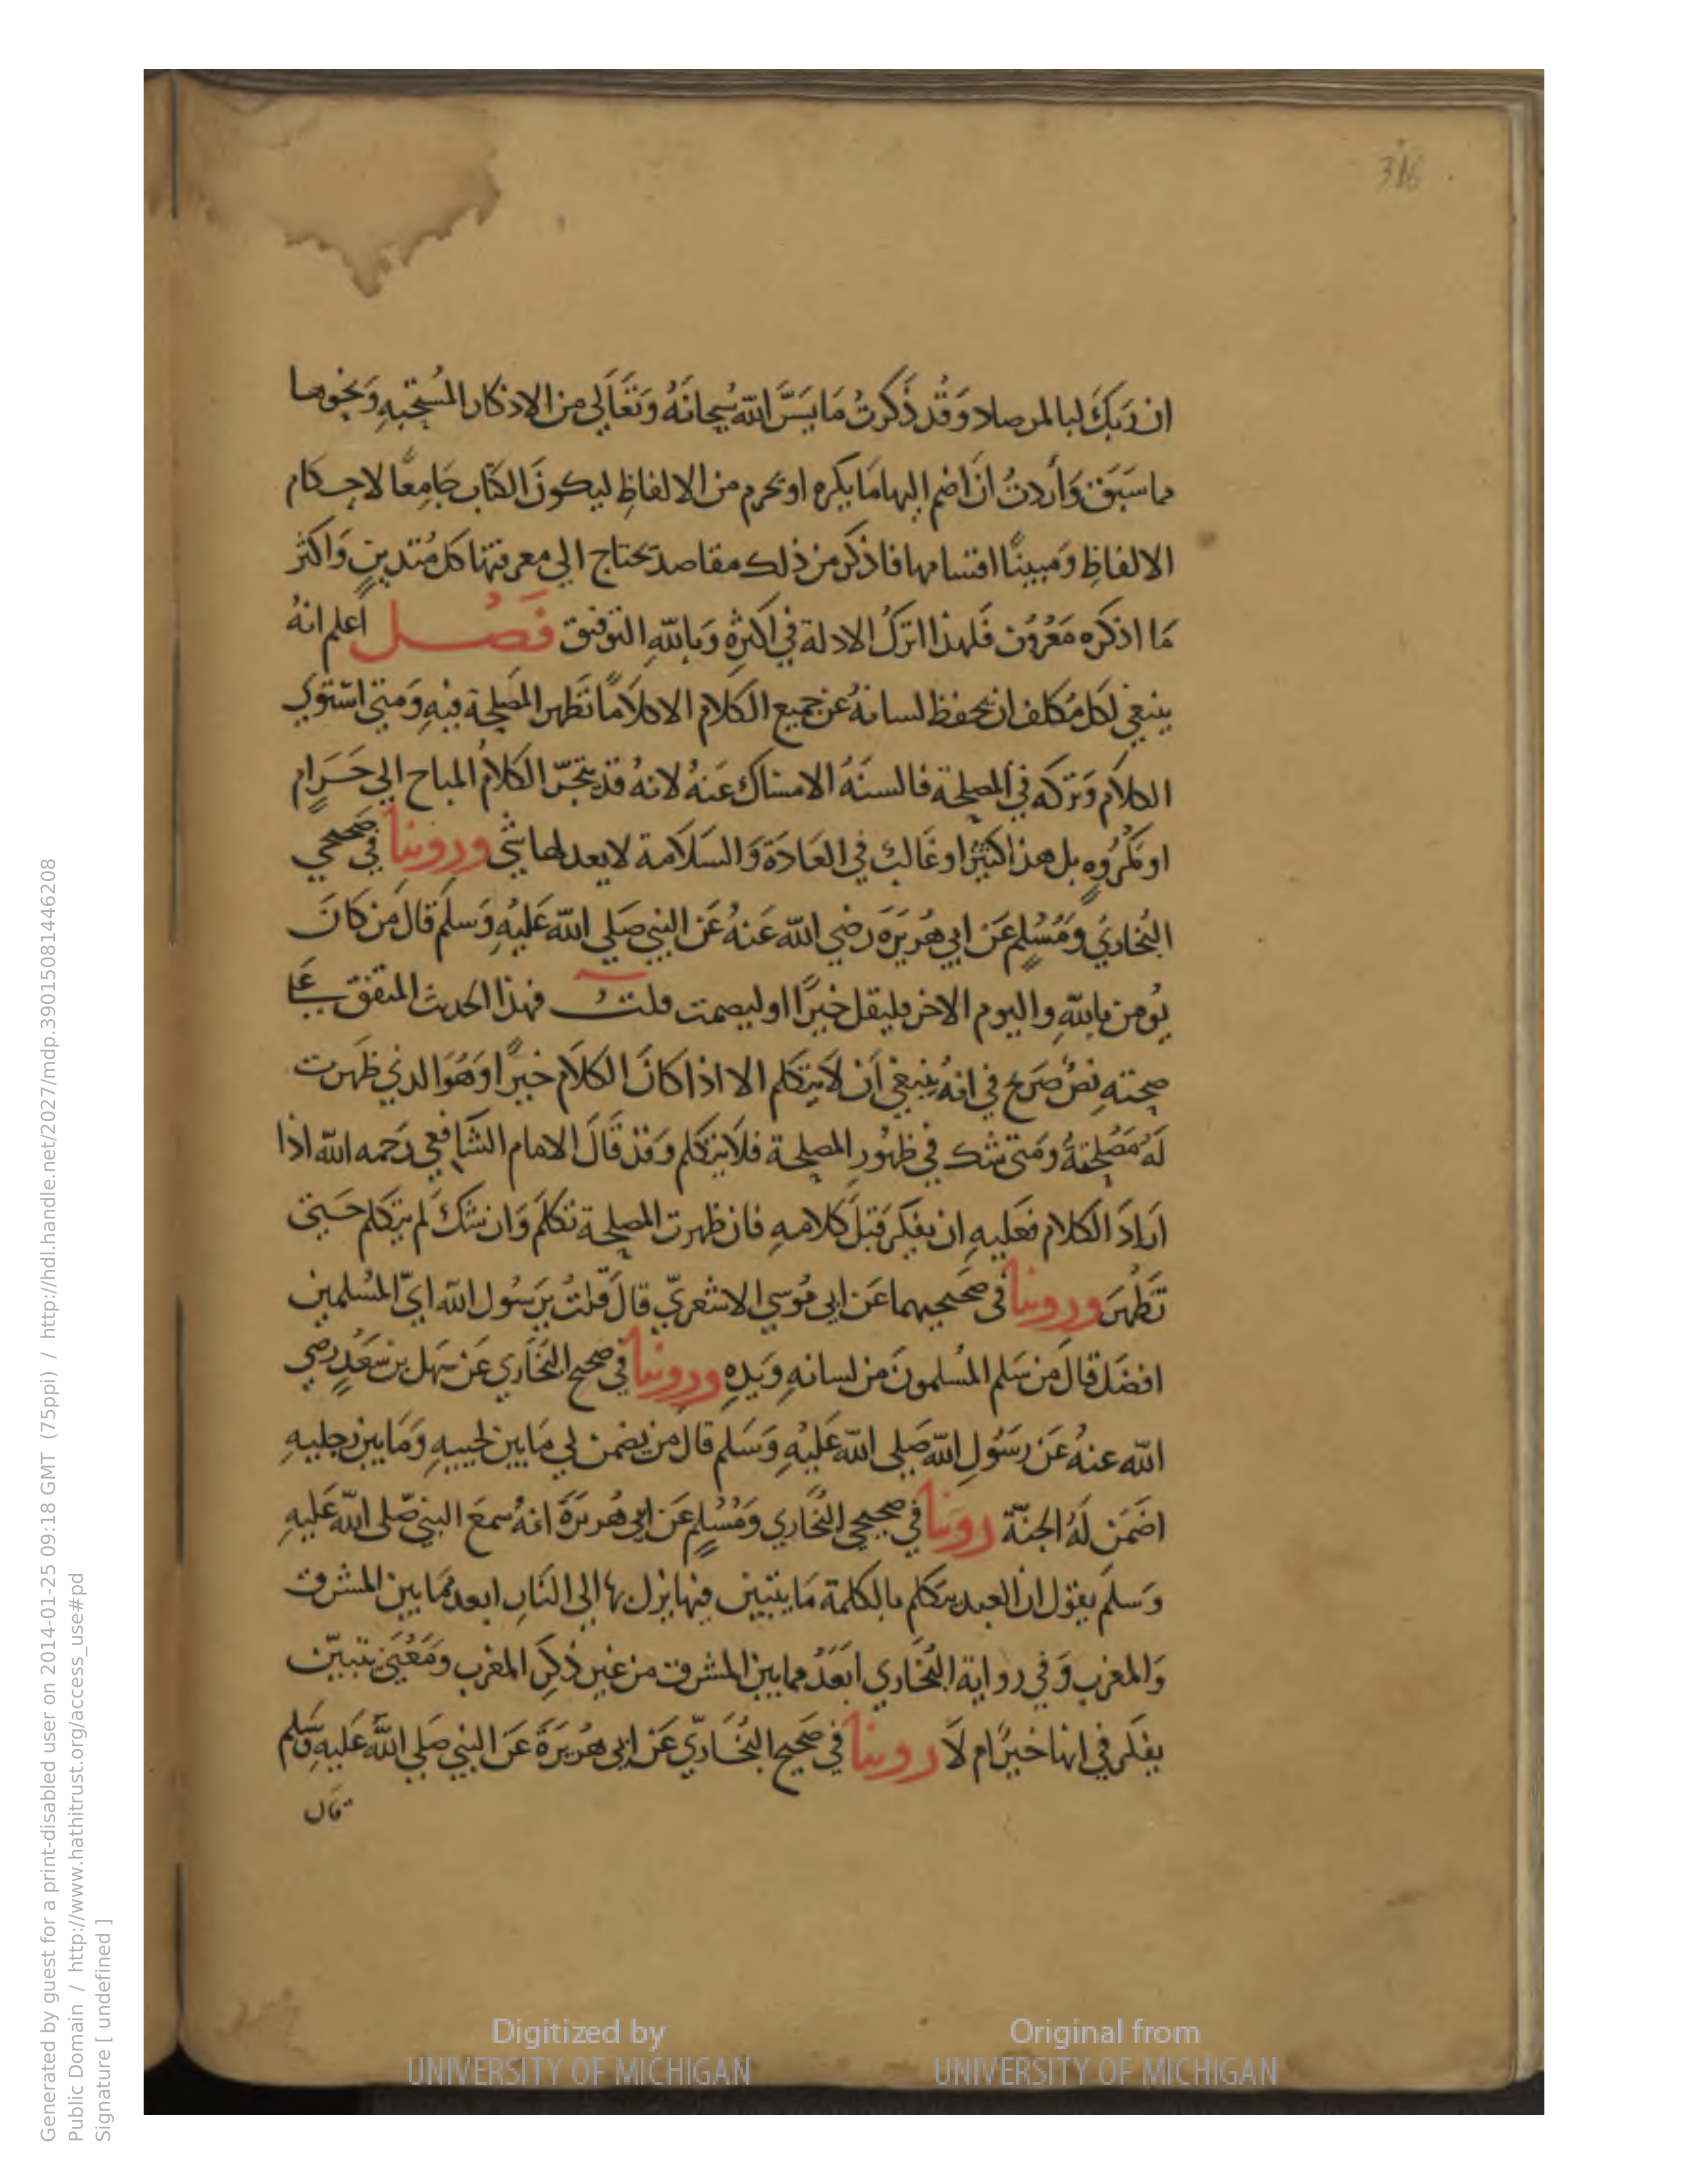 316
ان رَبكَ لبا لمرصاد وَقد ذَكرتُ مَا يَسَّرَ الله سُبحانَهُ وَتَعَالي من الاذكار المُستحبهِ وَنحوها
مما سَبَق وَأردتُ انَ اضم اليهامَا يكره او يحرم من الالفاظِ ليكونَ الكتاب جَامِعًا لاحكام
الالفاظِ وَمبينًا اقسامها فاذكر من ذلك مقاصد يحتاج الي معرفتها كل مُتدينٍ وَاكثر
مَا اذكره مَعْرُوف فَلهذا اترك الادلة في اكثرِه وَبالله التوفيق فَصْل اعلم انهُ
ينبغي لكل مُكلف ان يحفظ لسانهُ عن جميع الكلام الاكلامًا تَظهر المصلحة فيهِ وَمتى استوي
الكلام وَتركه في المصلحة فالسنَهُ الامساك عَنهُ لانهُ قد يَنجَرّ الكلام المباح الي حَرامٍ
او مَكرُوهٍ بل هذا كثيرٌ او غَالبٌ في العَادَة وَالسَلامة لا يعدلها شي وروينا في صحيحي
البُخاري وَمُسْلِمٍ عَن ابي هُرَيرَة رضي الله عَنهُ عَن النبي صَلي الله عَليْهِ وَسلم قال مَن كانَ
يُومن بالله واليوم الاخر فليقل خيرًا اوليصمت قلتُ فهذا الحديث المتفق عَلي
صحتهِ نصٌ صَرِيح في انهُ ينبغي اَن لا يتكلم الا اذا كانَ الكلام خيرًا وَهُوَ الذي ظهرت
لَهُ مَصْلحتهُ وَمتى شك في ظهُورِ المصلحة فلا يتكلم وَقد قَالَ الامام الشَافعي رَحمه الله اذا
ارَادَ الكلام فعَليهِ ان يفكر قبلَ كلامهِ فان ظهرت المصلحة تكلَم وَان شكَ لَم يتكلم حَتى
تَظْهَرَ وروينا في صَحيحيهما عَن ابي مُوسي الاشعريّ قالَ قلتُ يرَسُول الله ايّ المُسلمين
افضَل قالَ مَن سَلم المُسلمونَ من لسانهِ وَيَدِهِ وروينا في صحيح البُخَاري عَن سَهل بن سَعْدٍ رضي
الله عنهُ عَن رسَوُلِ الله صَلى الله عَليْهِ وَسَلم قالَ من يضمن لي مَا بين لحييهِ وَمَا بين رجليهِ
اضَمَن لَهُ الجنّة روينا في صحيحي البُخَاري وَمُسْلِمٍ عَن ابي هُريرَة انهُ سمعَ النبي صَلى الله عَليهِ
وَسلَم يقول ان العبد يتكلم بالكلمة مَا يتبين فيها يزل بها الى النَارِ ابعد ممَا بين المشرق
وَالمغرب وَفي رواية البُخَاري ابَعَدُ مما بين المشرق من غير ذكرِ المغرب وَمَعْنَي يتبيّن
يفكر في انها خيرٌ ام لاَ روينا في صَحيح البُخَاريّ عَن ابي هُريرَة عَن النبي صَلي الله عَليهِ وَسَلم
قال
Digitized by
UNIVERSITY OF MICHIGAN
Original from
UNIVERSITY OF MICHIGAN
Generated by guest for a print-disabled user on 2014-01-25 09:18 GMT (75ppi) / http://hdl.handle.net/2027/mdp.39015081446208
Public Domain / http://www.hathitrust.org/access_use#pd
Signature [ undefined ]